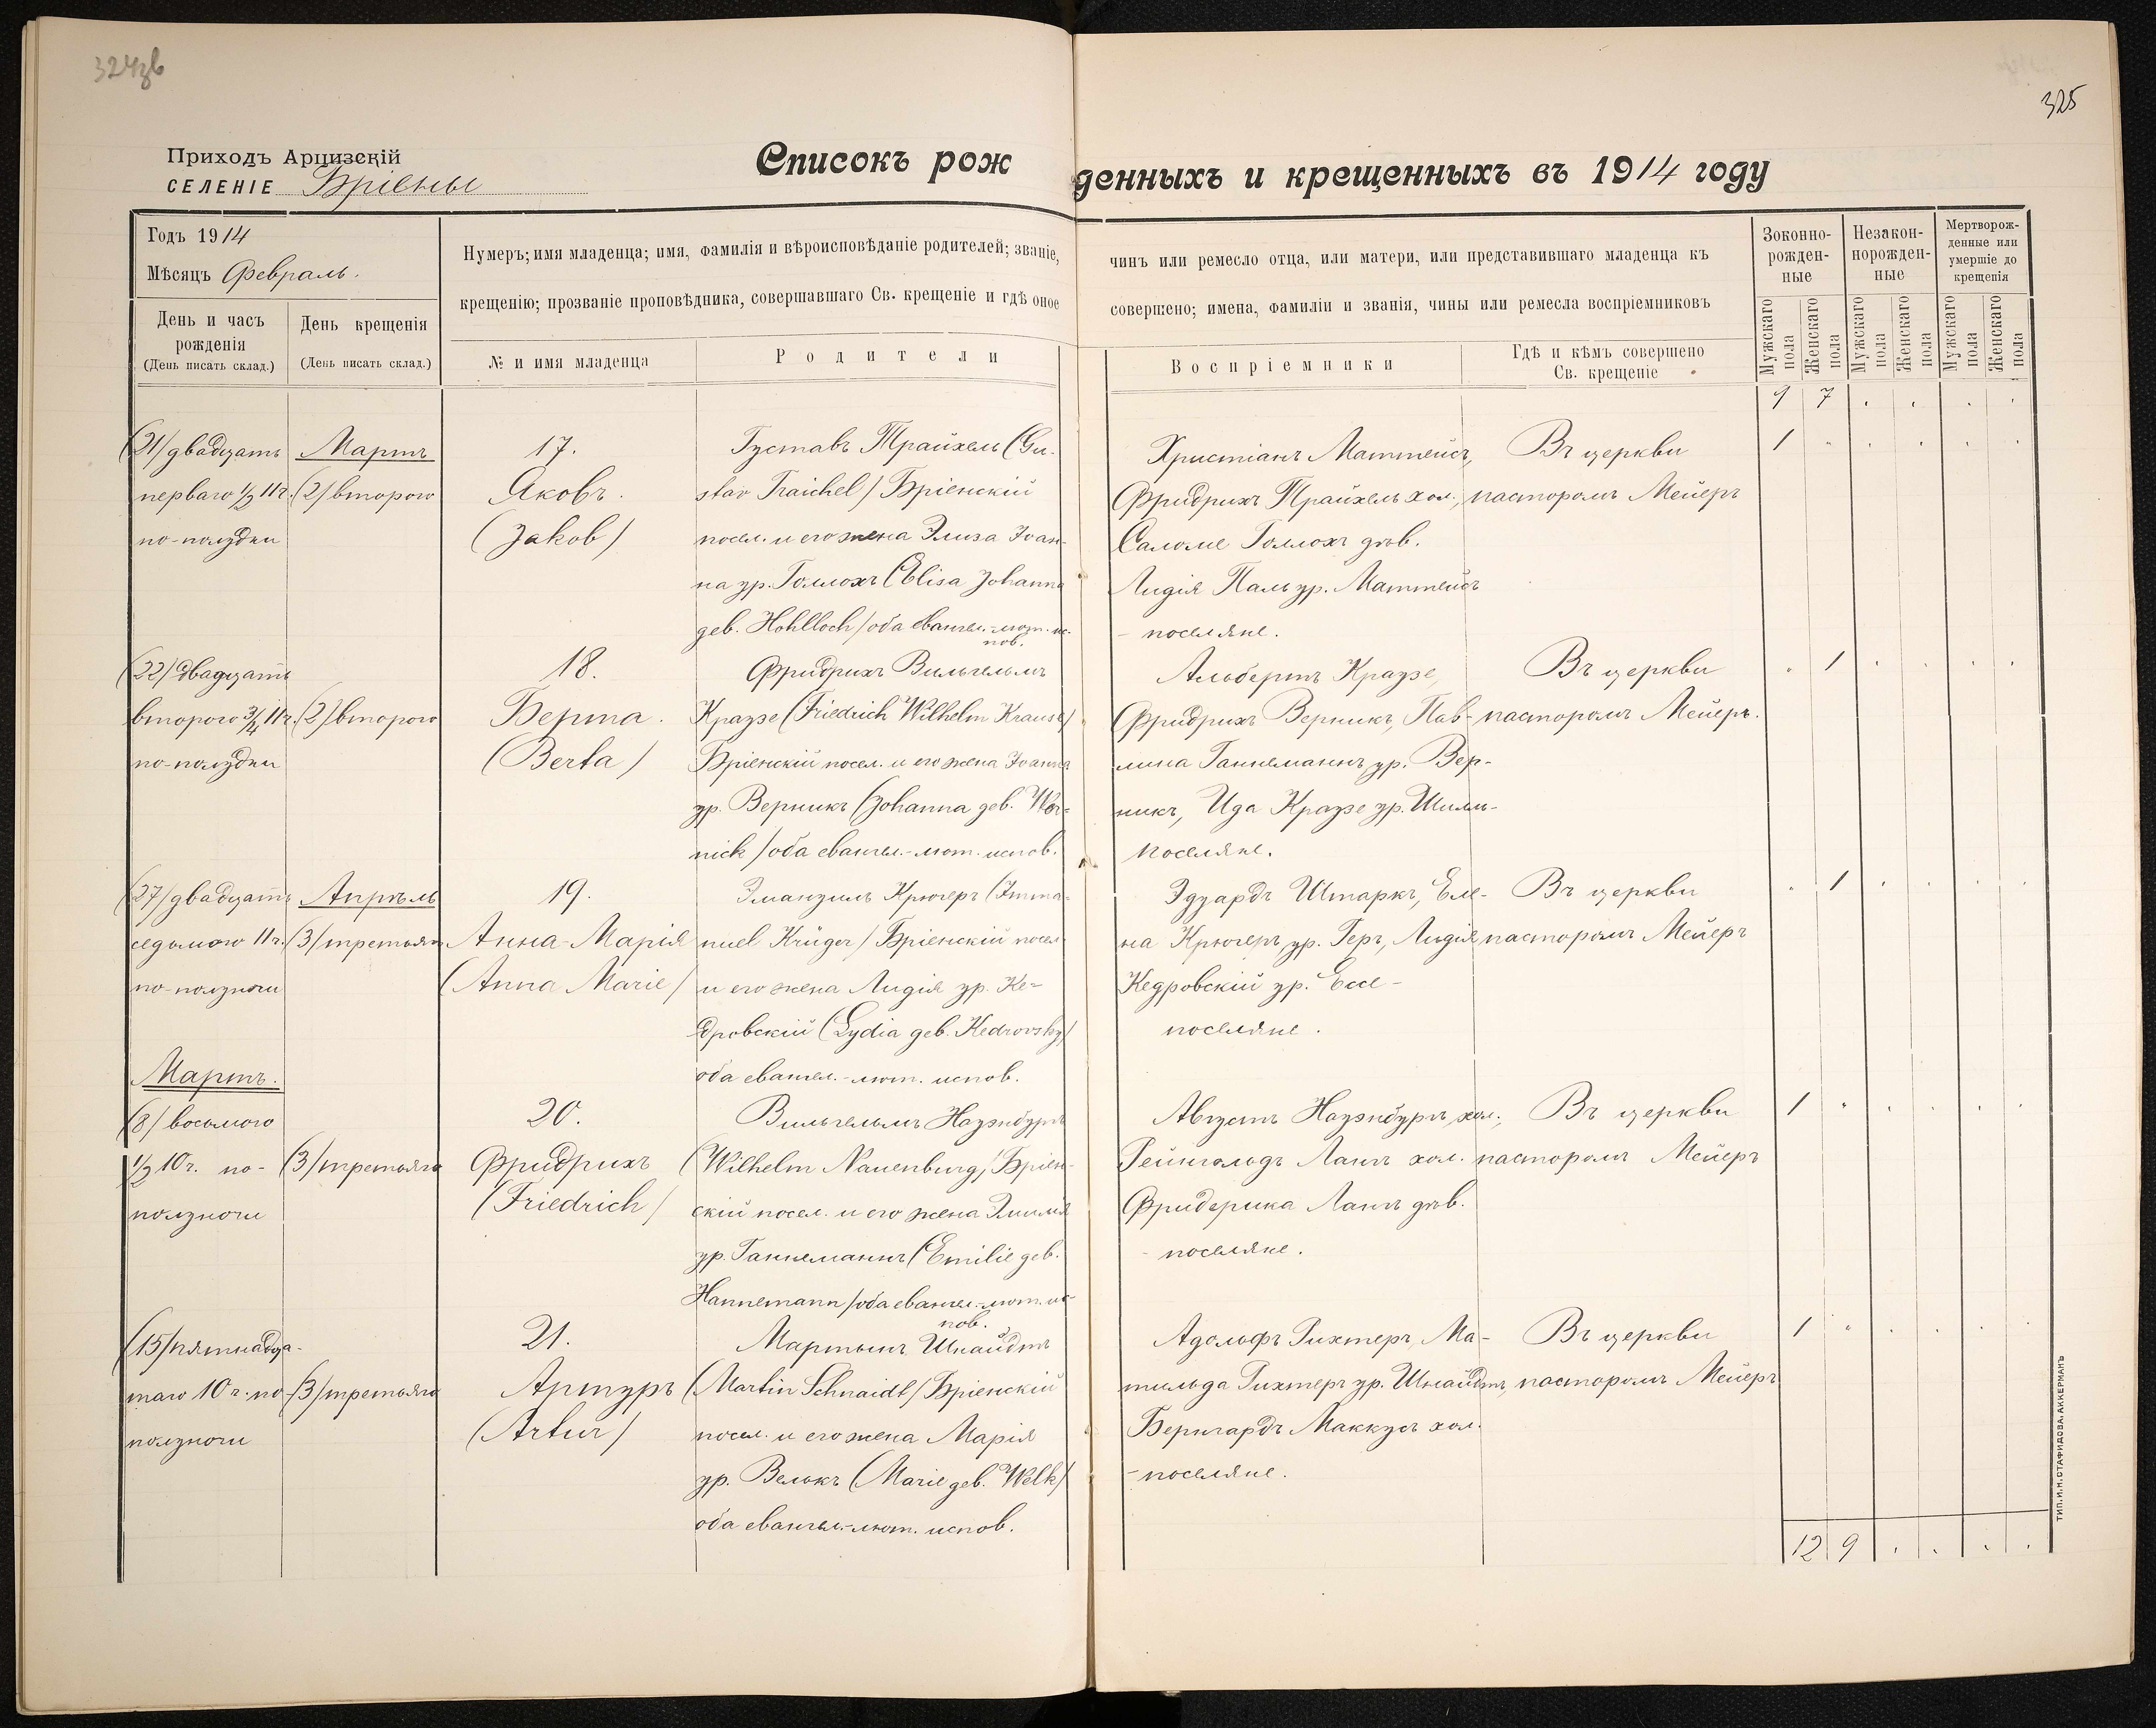 324зв
325
Приходъ Арцизскій
СЕЛЕНІЕ Бріены
Списокъ рожденныхъ и крещенныхъ въ 1914 году
Годъ 1914
Мѣсяцъ Февраль.
День и часъ рожденія
(День писать склад.)
День крещенія
(День писать склад.)
Нумеръ; имя младенца; имя, фамилія и вѣроисповѣданіе родителей; званіе, чинъ или ремесло отца, или матери, или представившаго младенца къ
крещенію; прозваніе проповѣдника, совершавшаго Св. крещеніе и гдѣ оное совершено; имена, фамиліи и званія, чины или ремесла воспріемниковъ
№ и имя младенца
Родители
Воспріемники
Гдѣ и кѣмъ совершено
Св. крещеніе
Зоконно-
рожден-
ные
Незакон-
норожден-
ные
Мертворож-
денные или
умершіе до
крещенія
Мужскаго пола
Женскаго пола
Мужскаго пола
Женскаго пола
Мужскаго пола
Женскаго пола
9 7 . . . .
(21/ двадцать
перваго 1/2 11 ч.
по-полудни
Мартъ
(2/ второго
17.
Яковъ.
(Jakob/
Густавъ Трайхель (Gu-
stav Traichel/ Бріенскій
посел. и его жена Элиза Іоан-
на ур. Голлохъ (Elisa Johanna
geb. Hohlloch/ оба евангел.-лют. ис-
пов.
Христіанъ Маттейсъ,
Фридрихъ Трайхель хол.,
Саломе Голлохъ дѣв.
Лидія Паль ур. Маттейсъ
- поселяне.
Въ церкви
пасторомъ Мейеръ
1 . . . . .
(22/ двадцать
второго 3/4 11 ч.
по-полудни
(2/ второго
18.
Берта.
(Berta/
Фридрихъ Вильгельмъ
Краузе (Friedrich Wilhelm Krause/
Бріенскій посел. и его жена Іоанна
ур. Верникъ (Johanna geb. Wer-
nick/ оба евангел.-лют. испов.
Альбертъ Краузе,
Фридрихъ Верникъ, Пав-
лина Ганнеманнъ ур. Вер-
никъ, Ида Краузе ур. Шилль-
поселяне.
Въ церкви
пасторомъ Мейеръ.
. 1 . . . .
(27/ двадцать
седьмого 11 ч.
по-полуночи
Апрѣль
(3/ третьяго
19.
Анна-Марія
(Anna Marie/
Эмануилъ Крюгеръ (Imma-
nuel Krüger/ Бріенскій посел.
и его жена Лидія ур. Ке-
дровскій (Lydia geb. Kedrovsky/
оба евангел.-лют. испов.
Эдуардъ Штаркъ, Еле-
на Крюгеръ, ур. Геръ, Лидія
Кедровскій ур. Ессе-
поселяне.
Въ церкви
пасторомъ Мейеръ
. 1 . . . .
Мартъ.
(8/ восьмого
1/2 10 ч. по-
полуночи
(3/ третьяго
20.
Фридрихъ
(Friedrich/
Вильгельмъ Науэнбургъ
(Wilhelm Nauenburg/ Бріен-
скій посел. и его жена Эмилія
ур. Ганнеманнъ (Emilie geb.
Hannemann/ оба евангел.-лют. ис-
пов.
Августъ Науэнбургъ хол.,
Рейнгольдъ Лангъ хол.
Фридерика Лангъ дѣв.
- поселяне.
Въ церкви
пасторомъ Мейеръ
1 . . . . .
(15/ пятнадца-
таго 10 ч. по-
полуночи
(3/ третьяго
21.
Артуръ
(Artur/
Мартынъ Шнайдтъ
(Martin Schnaidt/ Бріенскій
посел. и его жена Марія
ур. Велькъ (Marie geb. Welk/
оба евангел.-лют. испов.
Адольфъ Рихтеръ, Ма-
тильда Рихтеръ ур. Шнайдтъ,
Бернгардъ Маккусъ хол.
- поселяне.
Въ церкви
пасторомъ Мейеръ
1 . . . . .
12 9 . . . .
ТИП. И. Н. СТАФИДОВА. АККЕРМАНЪ